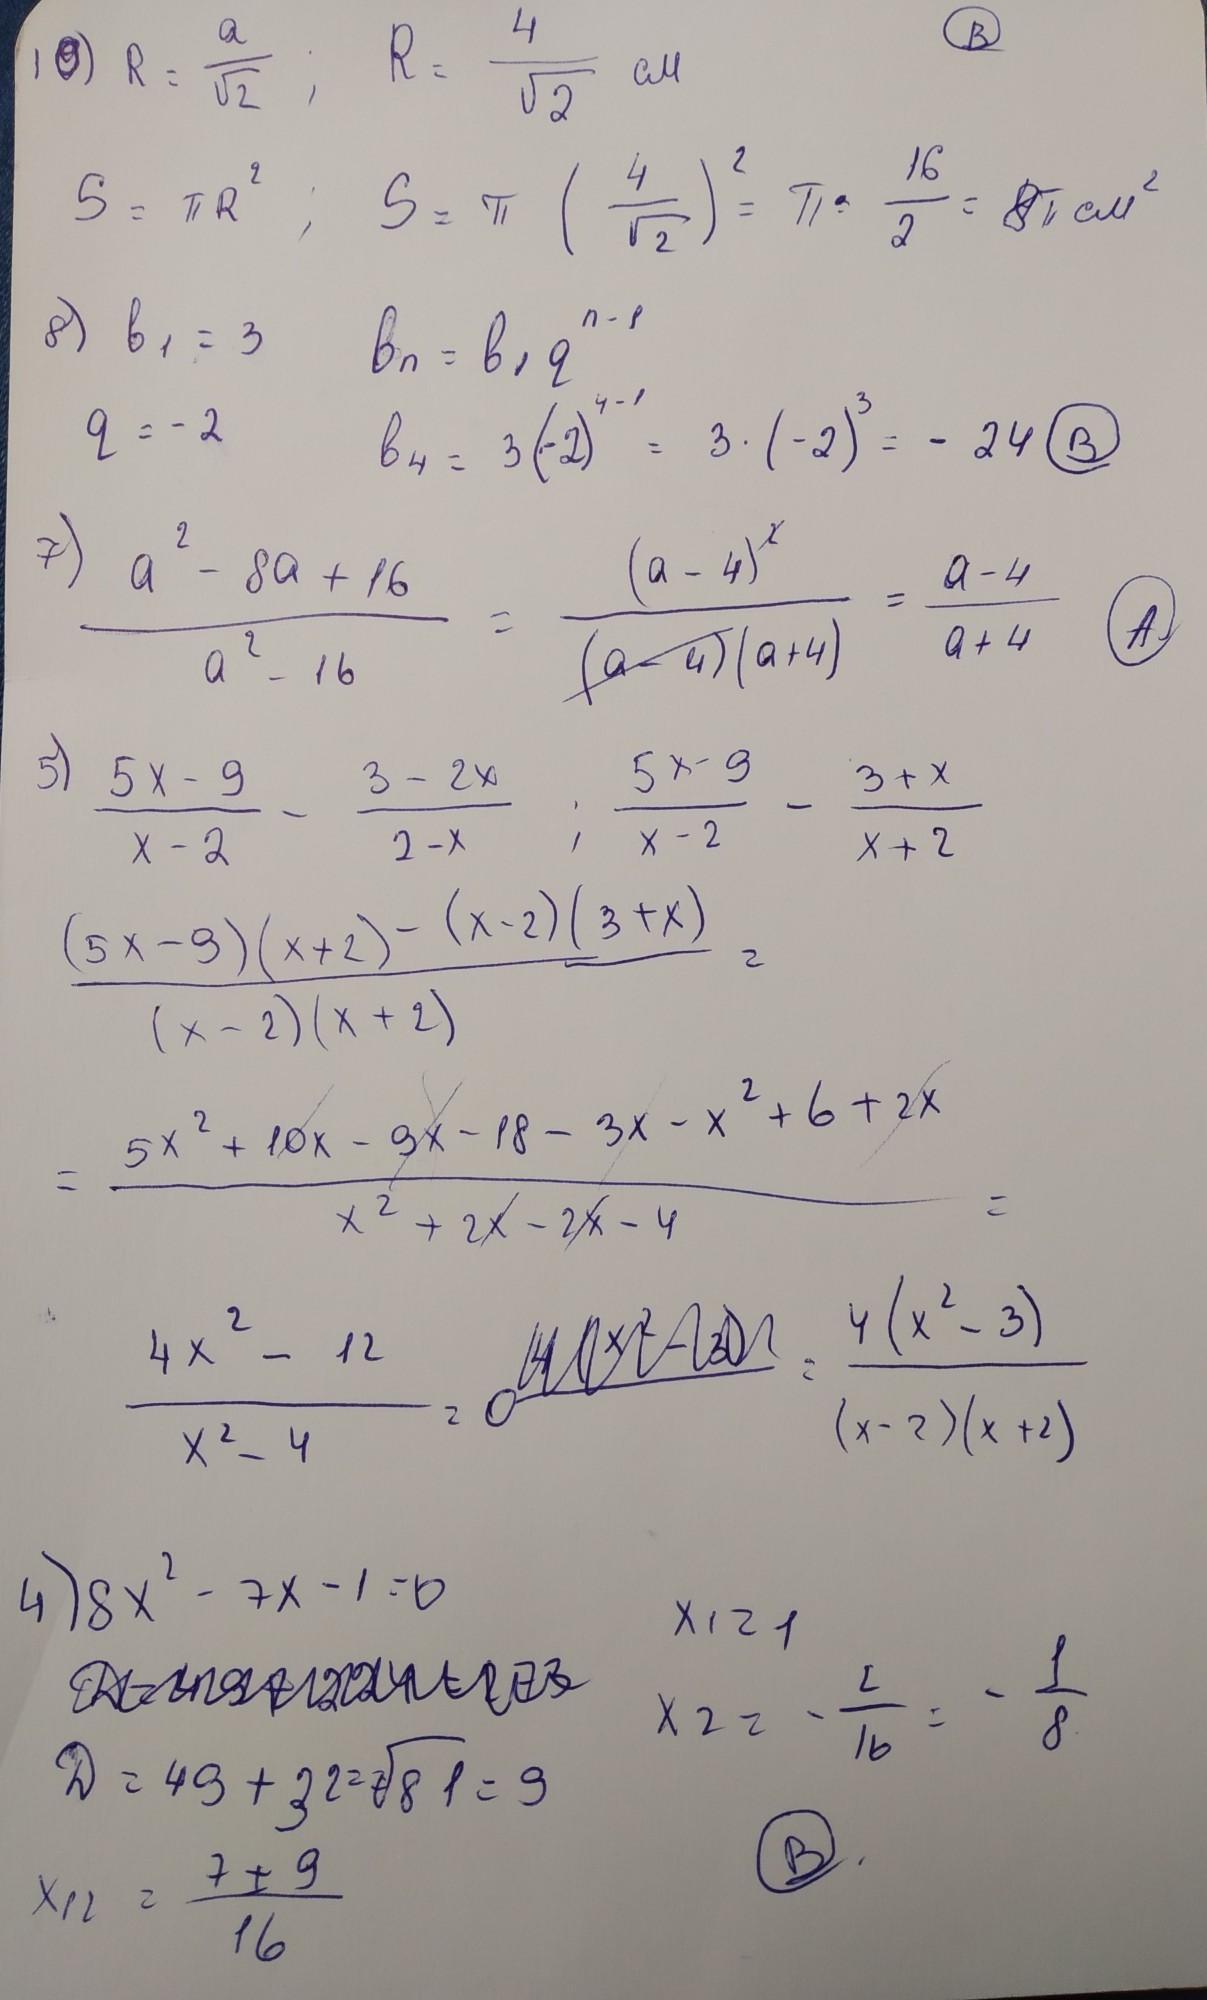 10) R = a/√2 ; R = 4/√2 см В
S = πR² ; S = π (4/√2)² = π · 16/2 = 8π см²
8) b₁ = 3 bₙ = b₁ qⁿ⁻¹
q = -2 b₄ = 3(-2)⁴⁻¹ = 3·(-2)³ = - 24 В
7) (a² - 8a + 16)/(a² - 16) = (a - 4)²/((a - 4)(a+4)) = (a - 4)/(a + 4) А
5) (5x - 9)/(x - 2) - (3 - 2x)/(2 - x) ; (5x - 9)/(x - 2) - (3 + x)/(x + 2)
((5x - 9)(x+2) - (x-2)(3+x))/((x - 2)(x + 2)) =
= (5x² + 10x - 9x - 18 - 3x - x² + 6 + 2x)/(x² + 2x - 2x - 4) =
(4x² - 12)/(x² - 4) = = 4(x² - 3)/((x - 2)(x + 2))
4) 8x² - 7x - 1 = 0
x₁ = 1
x₂ = - 2/16 = - 1/8
D = 49 + 32 = √81 = 9
x₁₂ = (7 ± 9)/16
В.